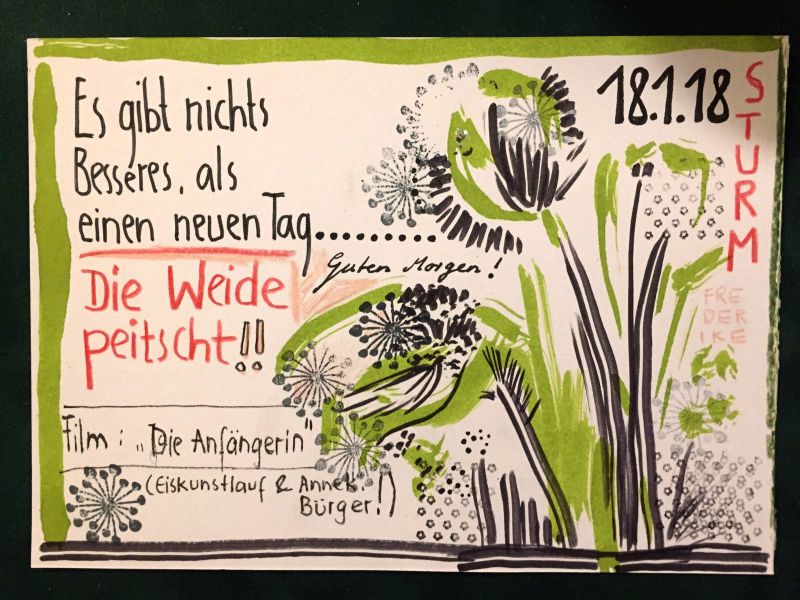 Es gibt nichts
Besseres, als
einen neuen Tag.........
Guten Morgen!
Die Weide
peitscht!!
Film: „Die Anfängerin"
(Eiskunstlauf & Annek.
Bürger!)
18.1.18
STURM
FRE
DER
IKE